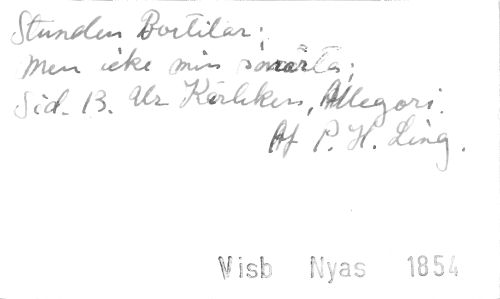 Stunden Bortilar;
Men icke min smärta;
Sid. 13. Ur Kärleken, Allegori.
Af P. H. Ling.
Visb Nyas 1854